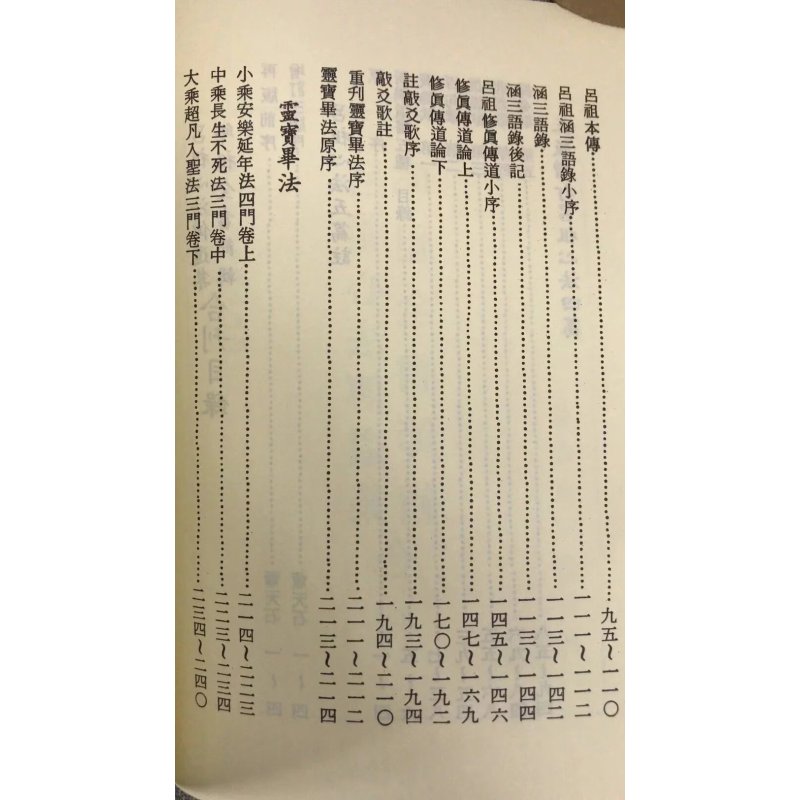 呂祖本傳……九五~一一〇
呂祖涵三語錄小序……一一一~一一二
涵三語錄……一一三~一四二
涵三語錄後記……一一三~一四四
呂祖修眞傳道小序……一四五~一四六
修眞傳道論上……一四七~一六九
修眞傳道論下……一七〇~一九二
註敲爻歌序……一九三~一九四
敲爻歌註……一九四~二一〇
重刋靈寶畢法序……二一一~二一二
靈寶畢法原序……二一三~二一四
靈寶畢法
小乘安樂延年法四門卷上……二一四~二二三
中乘長生不死法三門卷中……二二三~二三四
大乘超凡入聖法三門卷下……二三四~二四〇